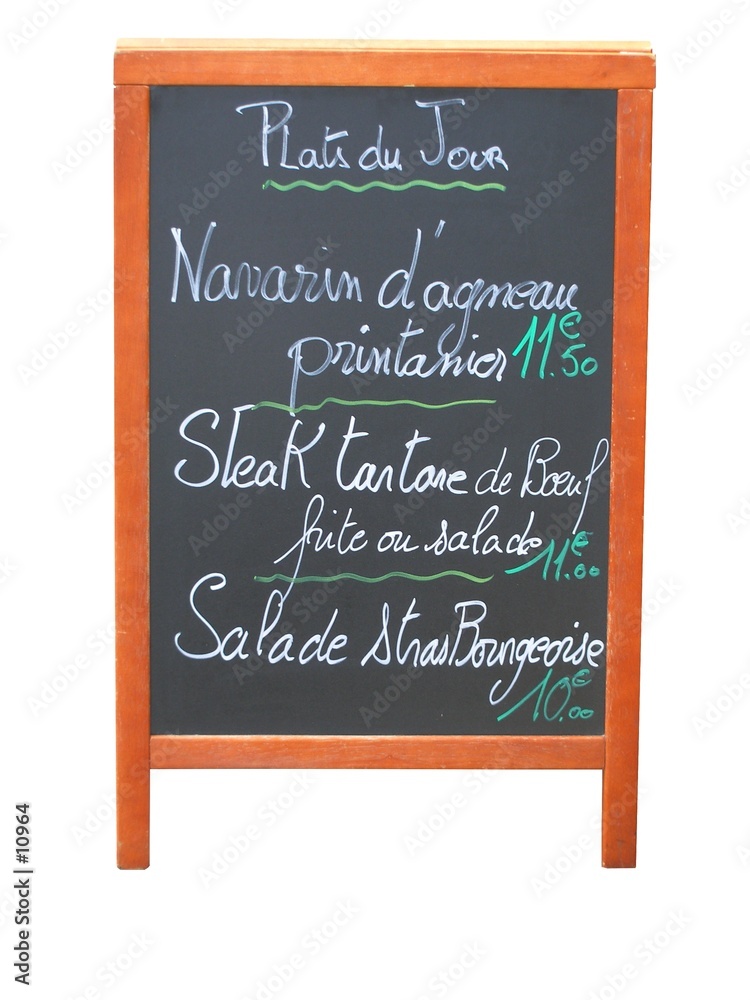 Plats du Jour
Navarin d'agneau
printanier 11€.50
Steak tartare de Bœuf
frite ou salade 11€.00
Salade StrasBourgeoise
10€.00
Adobe Stock | #10964